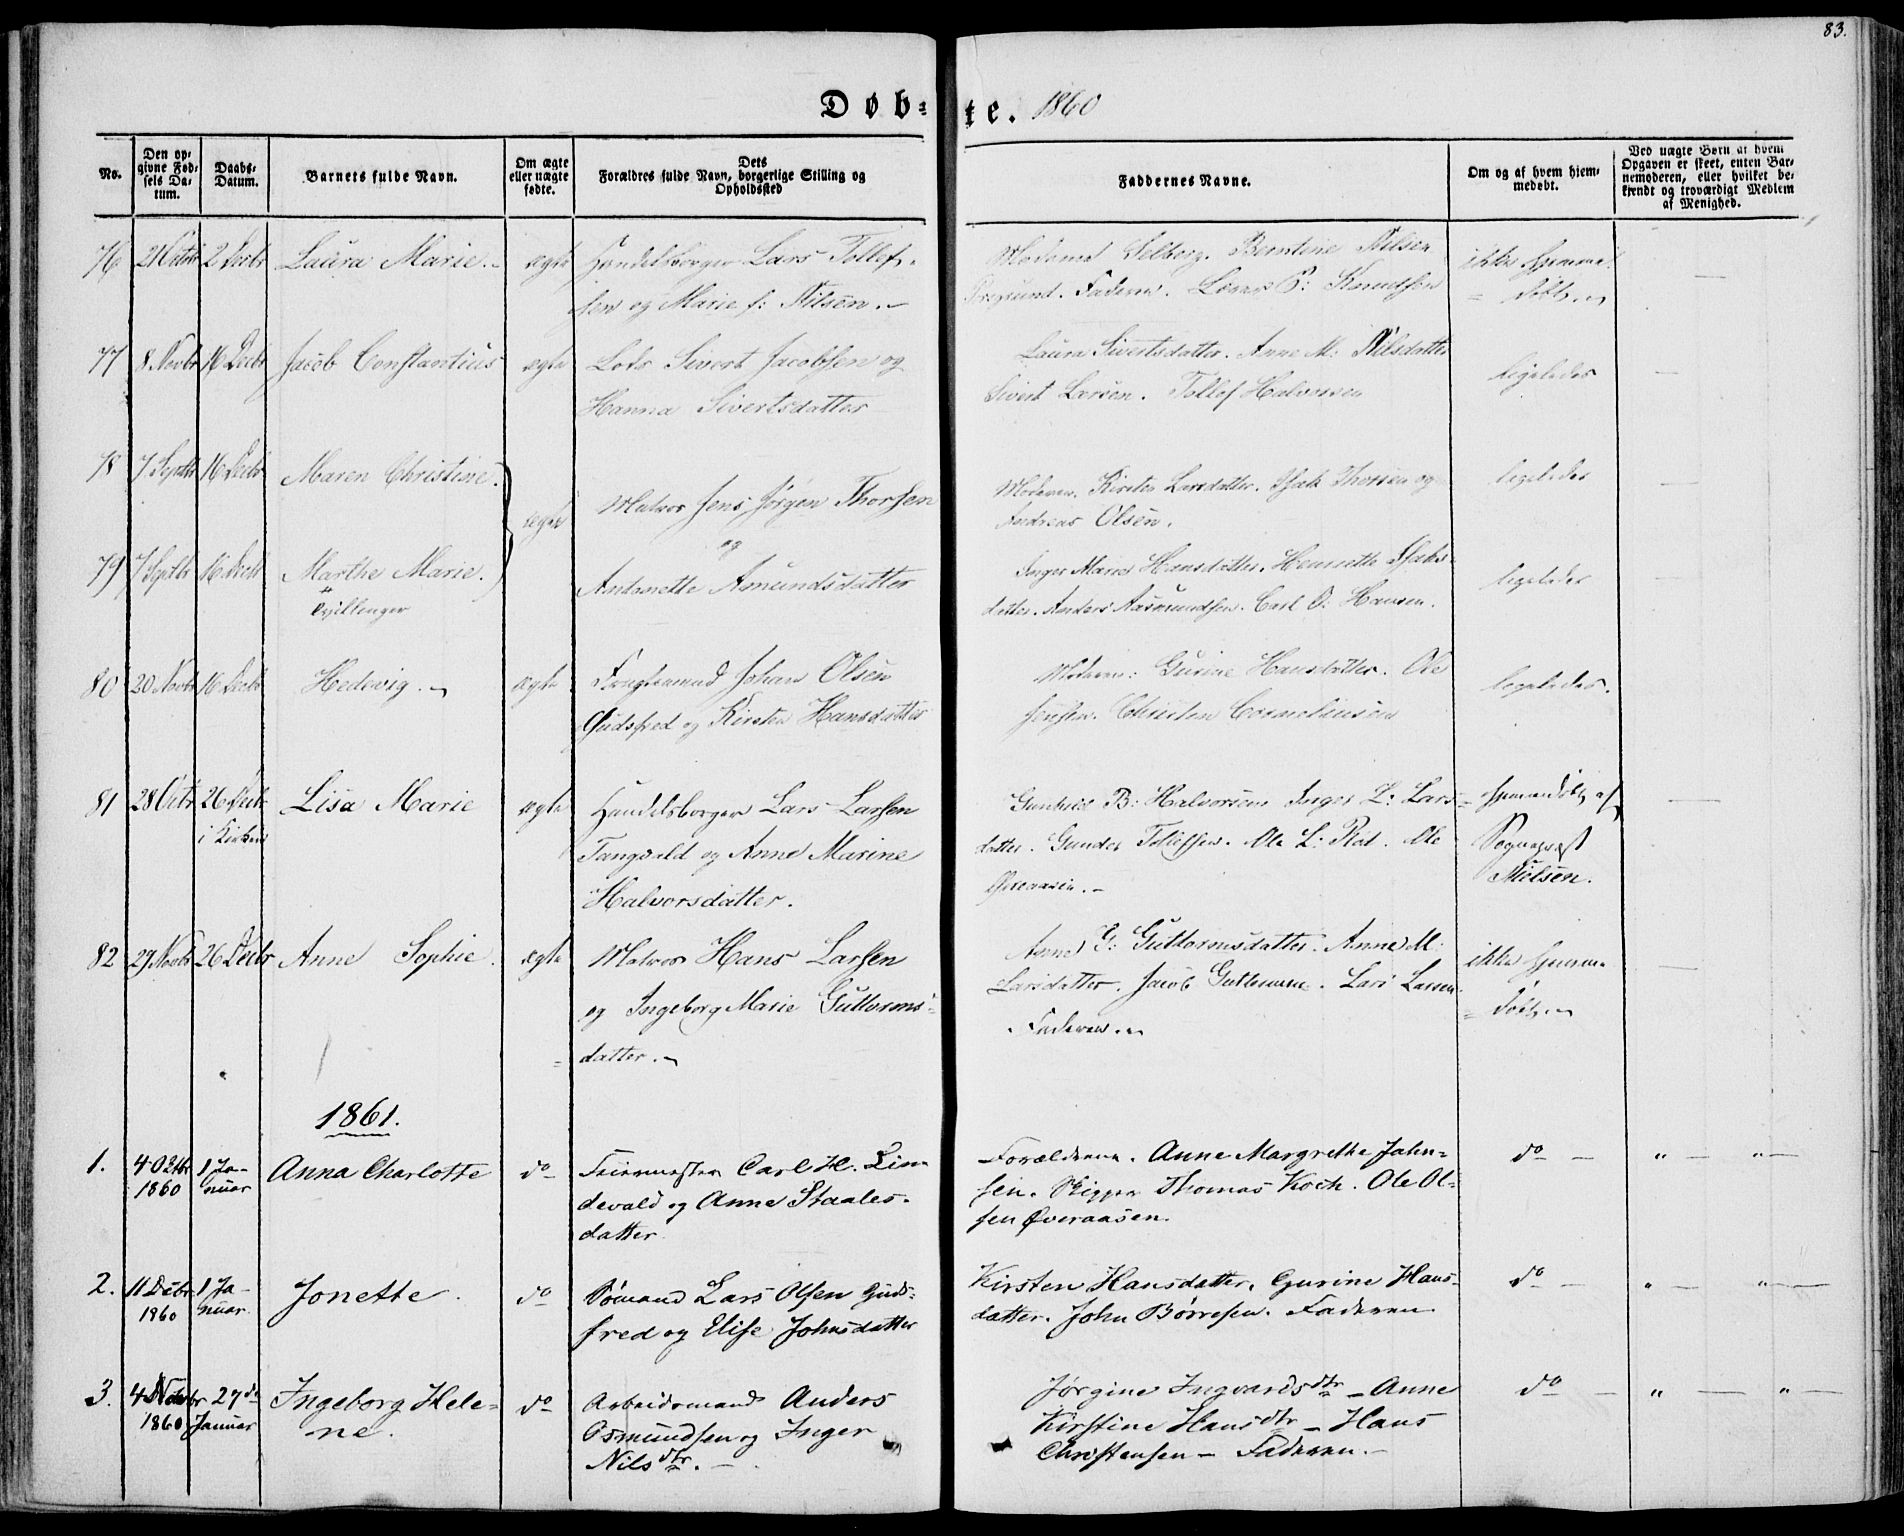 83.
Døb=te. 1860
No.
Den op=
givne Fød=
sels Da=
tum.
Daabs=
Datum.
Barnets fulde Navn.
Om ægte
eller uægte
fødte.
Dets
Forældres fulde Navn, borgerlige Stilling og
Opholdssted
Faddernes Navne.
Om og af hvem hjem=
medøbt.
Ved uægte Børn af hvem
Opgaven er skeet, enten Bar=
nemoderen, eller hvilket be=
kjendt og troværdigt Medlem
af Menighed.
76 21 Octbr 2 Decbr Laura Marie. ægte Handelsborger Lars Tollef=
sen og Marie f: Nilsen.
Madame Selberg. Berntine Nilsen
Faderen. P: Knudsen
ikke hjemme=
døbt.
77 8 Novbr 16 Decbr Jacob Constantius ægte Lods Sivert Jacobsen og
Hanna Sivertsdatter
Laura Sivertsdatter. Anne M: Nilsdatter
Sivert Larsen. Tollef Halvorsen
ligeledes
78 7 Septbr 16 Decbr Maren Christine.
79 7 Septbr 16 Decbr Marthe Marie.
Tvillinger
ægte
Matros Jens Jørgen Thorsen
og
Antonette Amundsdatter
Moderen. Kirsten Larsdatter. Isak Thorsen og
Andreas Olsen.
ligeledes
Inger Marie Hansdatter. Henriette Isaks=
datter. Anders Aasmundsen. Carl O: Hansen.
ligeledes
80 20 Novbr 16 Decbr Hedevig. ægte Johan Olsen
Gudsfred og Kirsten Hansdatter
Moderen: Gurine Hansdatter. Ole
Jensen. Christen Corneliussen
ligeledes.
81 28 Octbr 26 Decbr
i Kirken
Lisa Marie ægte Handelsborger Lars Larsen
Tangvald og Anne Marine
Halvorsdatter.
Gunhild B: Halvorsen Inger L: Lars=
datter. Gunder Tollefsen. Ole L: Ole
Øveraasen.
hjemmedøbt af
Sognepræst
Nielsen.
82 29 Novbr 26 Decbr Anne Sophie. ægte Matros Hans Larsen
og Ingeborg Marie Guttorms=
datter.
Anne G: Guttormsdatter. Anne M:
Larsdatter. Jacob Guttormsen. Lars Larsen
Faderen.
ikke hjemme=
døbt.
1861.
1. 4 Octbr
1860
1 Ja=
nuar
Anna Charlotte do Feiermester Carl H. Lin=
devald og Anne Staales=
datter.
Forældrene. Anne Margrethe Jahn=
sen. Skipper Thomas Koch. Ole Ol=
sen Øveraasen.
do
2. 11 Debr
1860
1 Ja=
nuar.
Jonette. do Sømand Lars Olsen Guds=
fred og Elise Johnsdatter
Kirsten Hansdatter. Gurine Hans=
datter. John Børresen. Faderen.
do
3. 4 Novbr
1860
27de
Januar
Ingeborg Hele=
ne.
do Arbeidsmand Anders
Osmundsen og Inger
Nilsdtr.
Jørgine Ingvardsdtr – Anne
Kirstine Hansdtr – Hans
Christensen – Faderen.
do